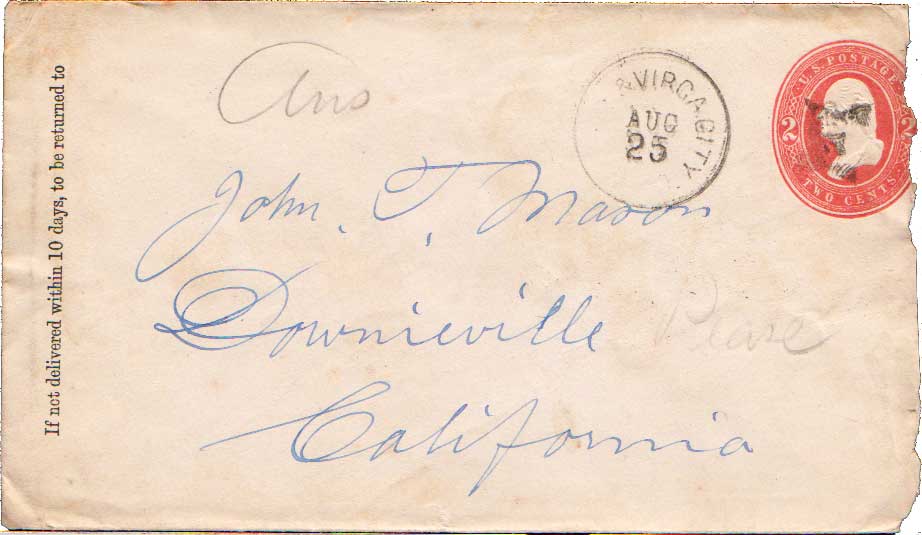 If not delivered within 10 days, to be returned to
Ans
&VIRG.A.CITY
AUG
25
U.S. POSTAGE
2 2
TWO CENTS
John. T. Mason
Downieville
Please
California